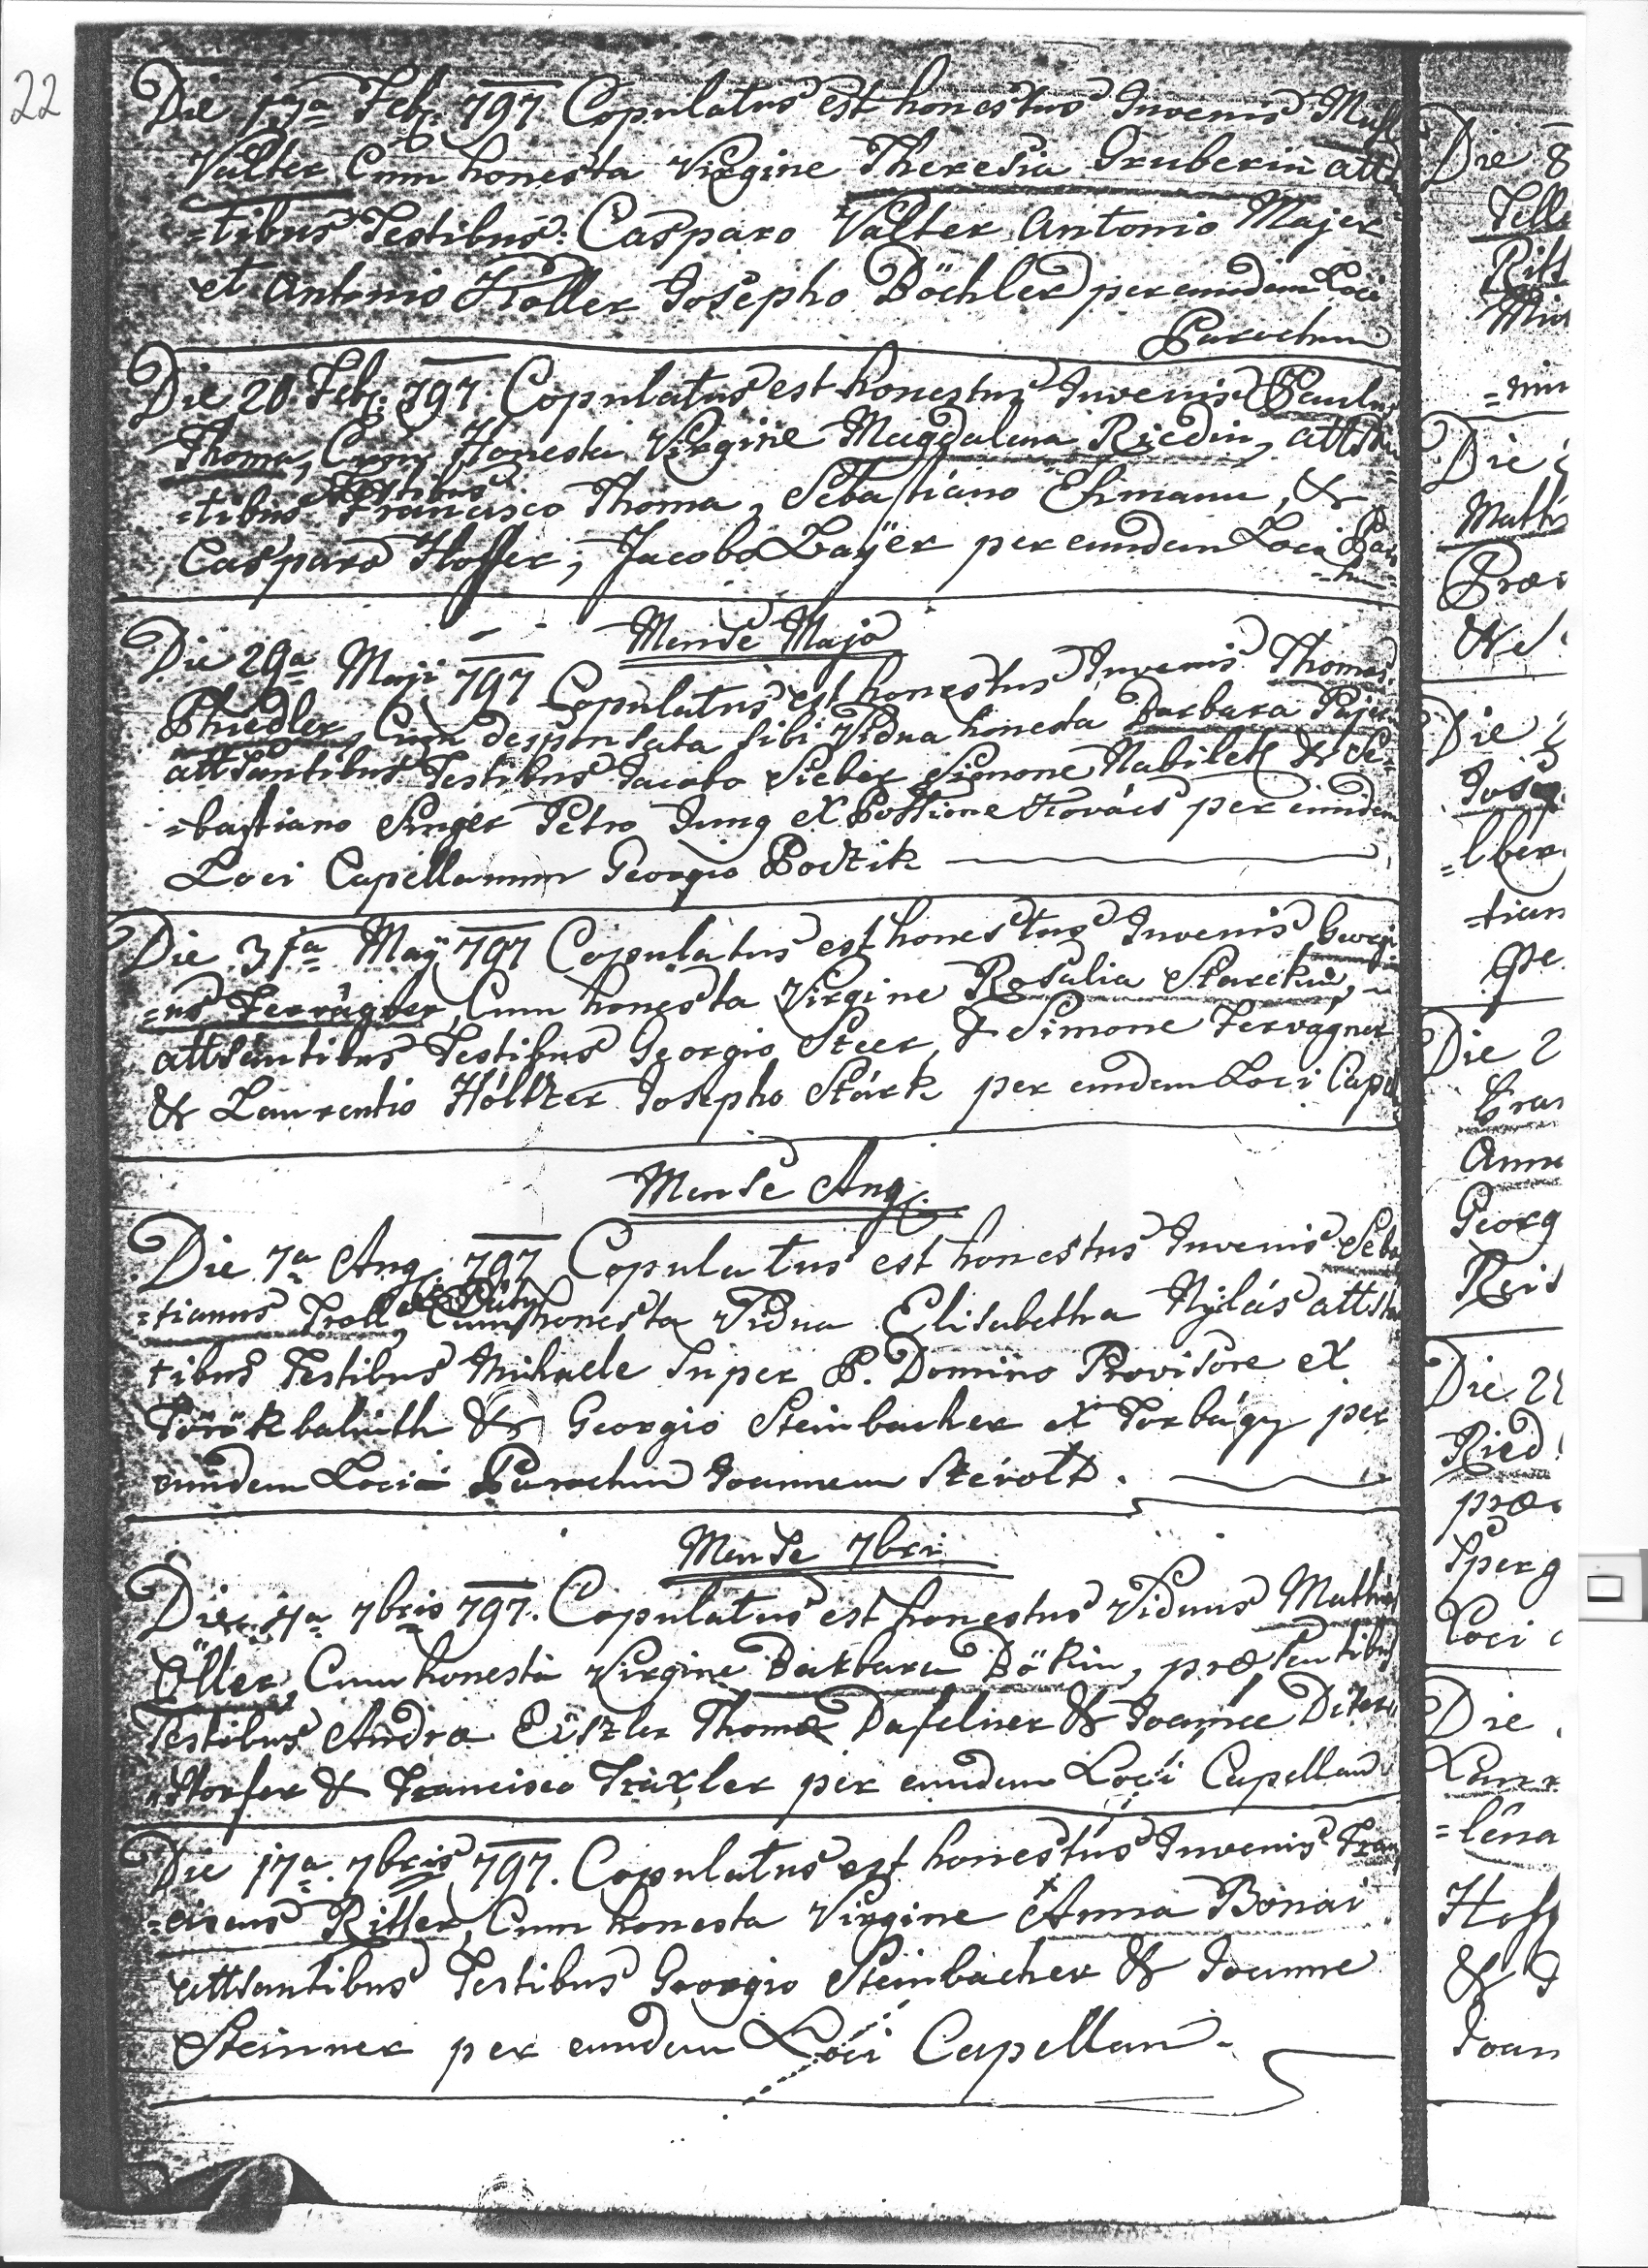 22
Die 17a Feb. 797 Copulatus est honestus Juvenis
Valter Cum honesta Virgine Theresia Gruberin
=tibus Testibus: Casparo Valter Antonio Majer
et Antonio Koller Josepho Böchler per eundem Loci
Parochum
Die 20 Feb. 797. Copulatus est honestus Juvenis Paulus
Thoma, Cum Honesta Virgine Magdalena Riedin,
=tibus Testibus Francisco Thoma, Sebastiano Ehmann, &
Casparo Hoffer; Jacobo Layer per eundem Loci
Mense Majo
Die 29a Maji 797 Copulatus est honestus Juvenis Thomas
Phiedler, Cum desponsata sibi Vidua honesta Barbara
attsantibus Testibus Jacobo Sieber Simone Nabilek & Se=
=bastiano Singer Petro Jung ex Possione Kovács per eundem
Loci Capellanum Georgio Bodzik
Die 31a Maÿ 797 Copulatus est honestus Juvenis Georgi
=us Fervägner, Cum honesta Virgine Rosalia
attsantibus Testibus Georgio Steer, & Simone Fervagner
& Laurentio Josepho Stárk per eundem Loci
Mense Aug.
Die 7a Aug. 797 Copulatus est honestus Juvenis Seba
=tianus Troll, Cum honesta Vidua Elisabetha Nÿlás
tibus Testibus Mihaele Super P. Domino Provisore ex
Törökbalinth & Georgio Steinbacher ex Torbágy per
eundem Loci Parochum Joannem
Mense 7bri
Die 7bris 797. Copulatus est honestus Viduus Mathias
Öller, Cum honesta Virgine Barbara Bökin, præsentibus
Testibus Andra Thoma & Joanne
& Francisco Trixler per eundem Loci Capellan
Die 17a. 7bris 797. Copulatus est honestus Juvenis Fran
=ciscus Ritter, Cum honesta Virgine Anna Bonai
attsantibus Testibus Georgio Steinbacher & Joanne
Steinner per eundem Loci Capellan.
Die 8
=min
Die
Præ
Die
=lber
=tian
pe
Die 2
Georg
Reis
Die
Ried
præ
Sperg
Loci
Die
=lena
Hoff
Joan